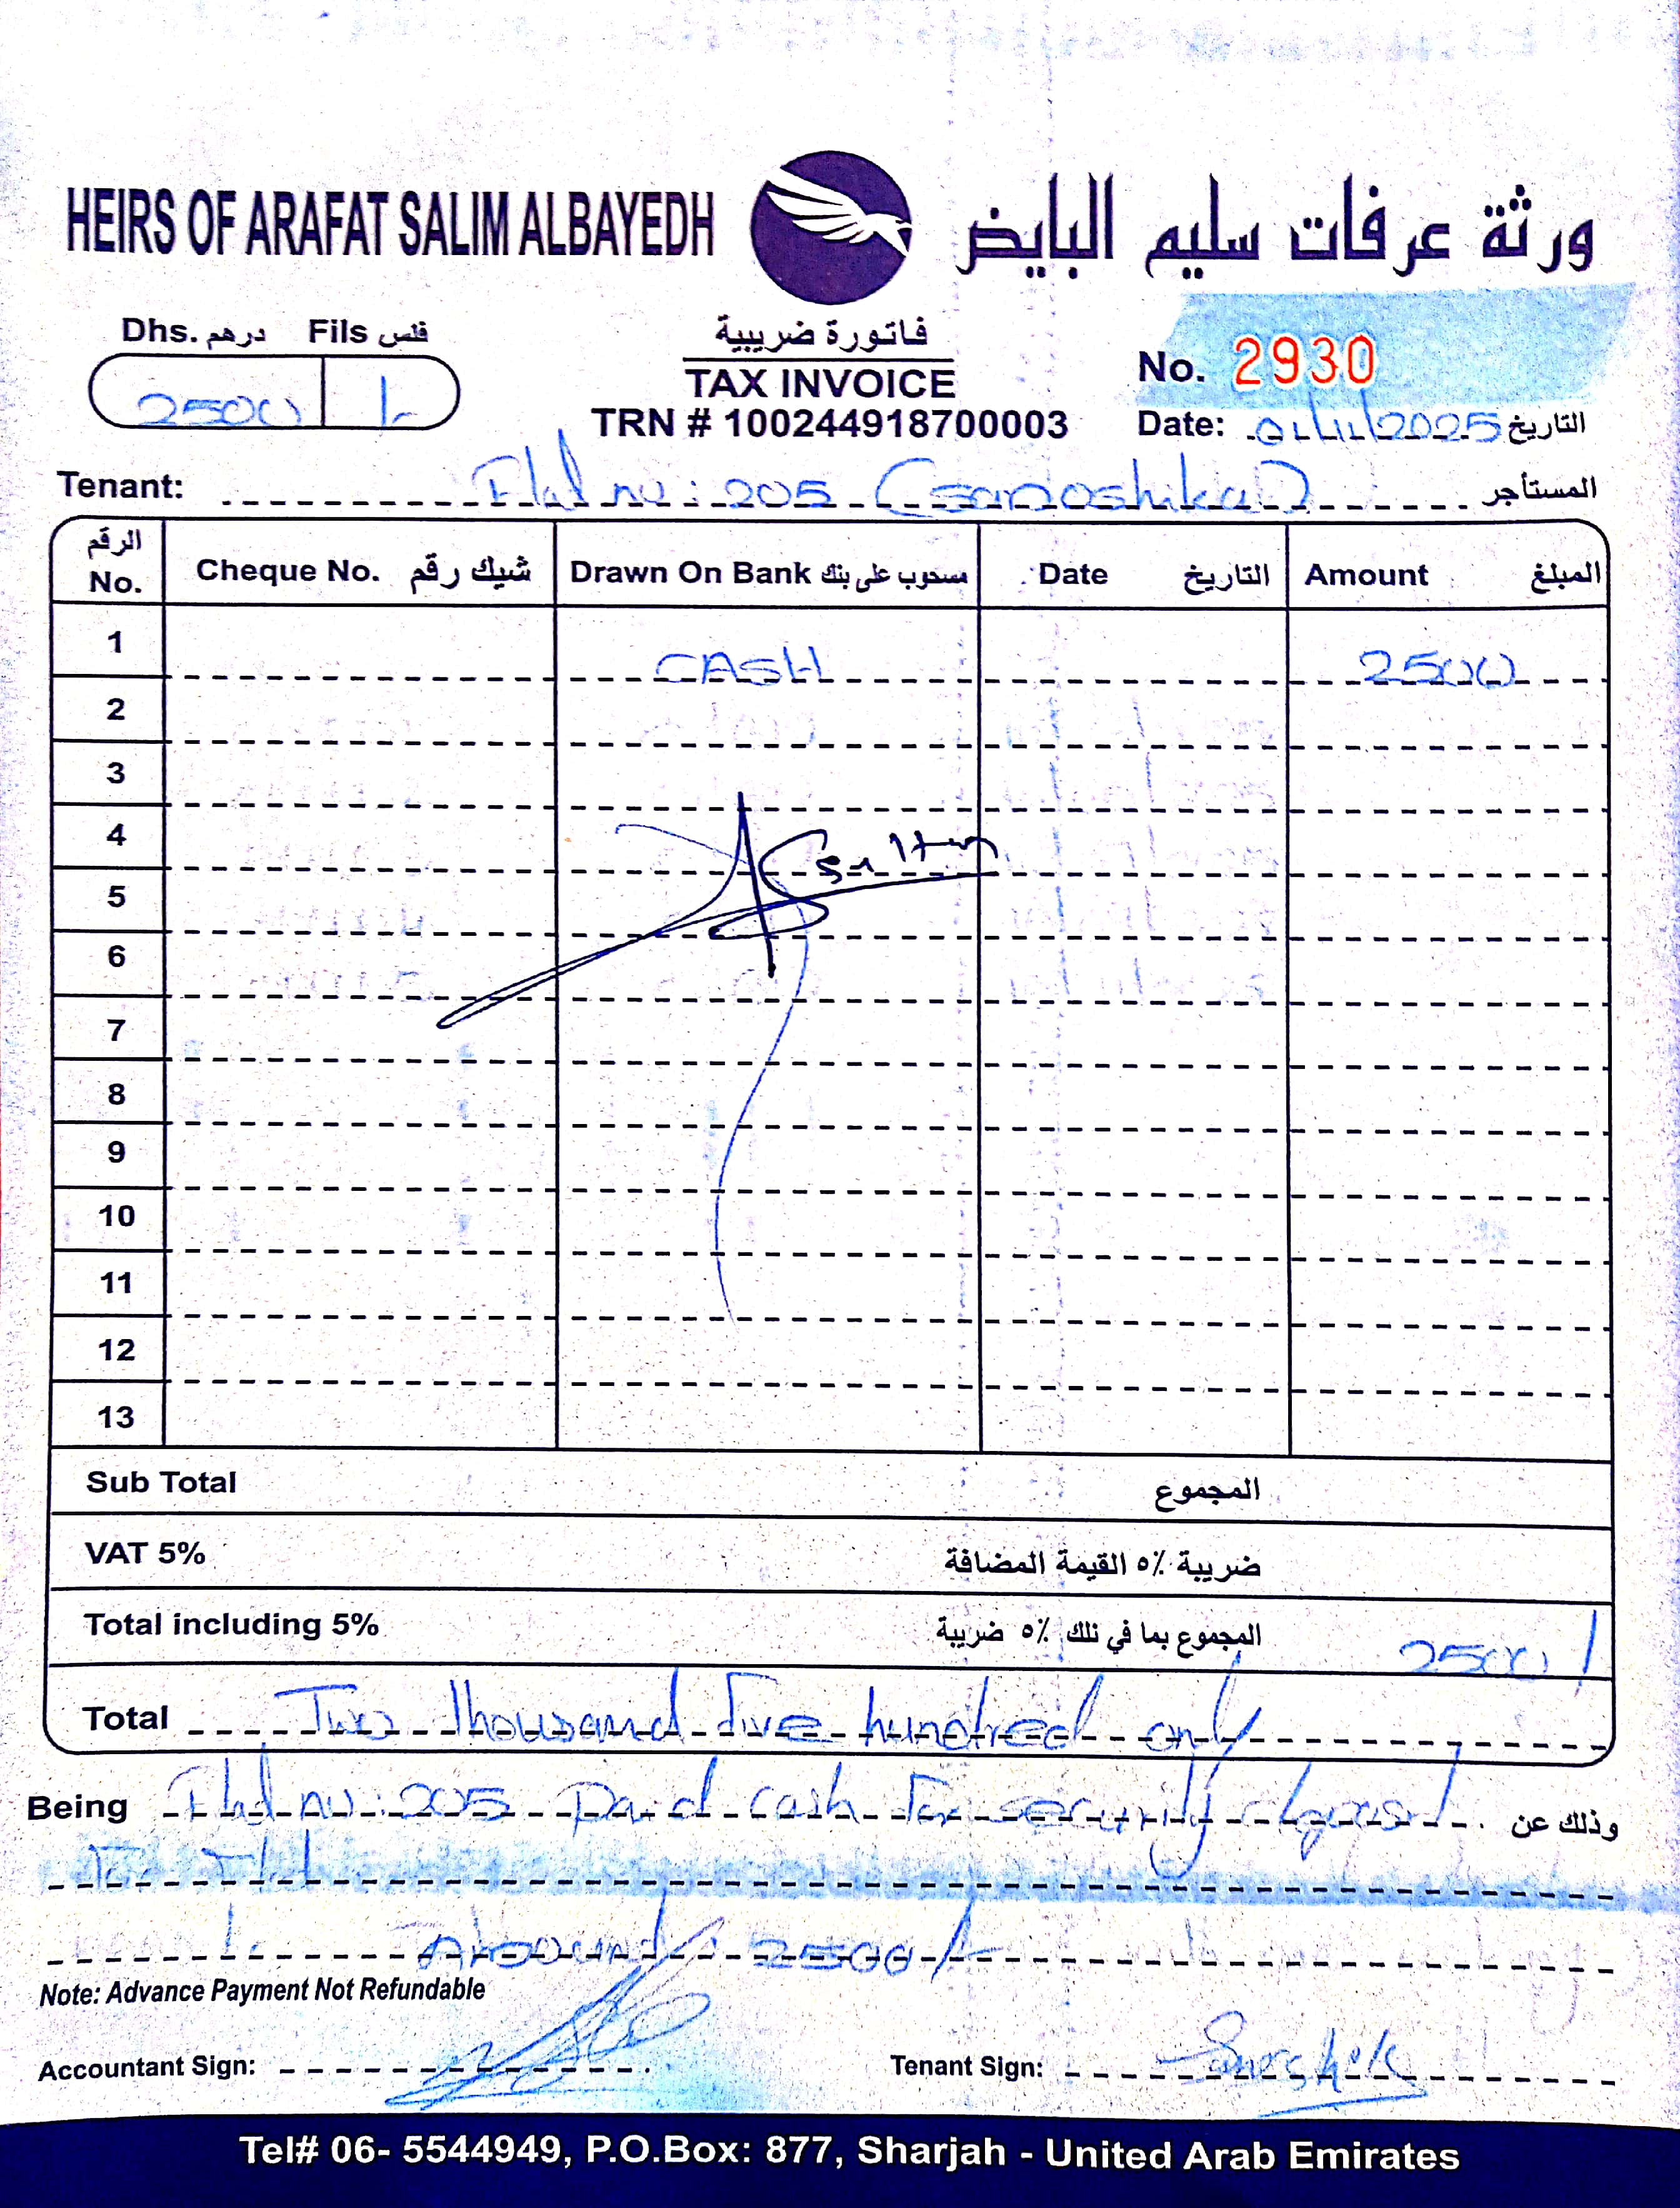 HEIRS OF ARAFAT SALIM ALBAYEDH ورثة عرفات سليم البايض
Dhs. درهم Fils فلس
2500 /-
فاتورة ضريبية
TAX INVOICE
TRN # 100244918700003
No. 2930
Date: 01/11/2025 التاريخ
Tenant: Flat no: 205 (Sanoshika) المستأجر
الرقم No. Cheque No. شيك رقم Drawn On Bank مسحوب على بنك Date التاريخ Amount المبلغ
1 CASH 2500
2
3
4
5
6
7
8
9
10
11
12
13
Sub Total المجموع
VAT 5% ضريبة ٥٪ القيمة المضافة
Total including 5% المجموع بما في ذلك ٥٪ ضريبة 2500/
Total Two thousand five hundred only
Being Flat no: 205 paid cash for security deposit وذلك عن
Amount: 2500/-
Note: Advance Payment Not Refundable
Accountant Sign:
Tenant Sign:
Tel# 06- 5544949, P.O.Box: 877, Sharjah - United Arab Emirates